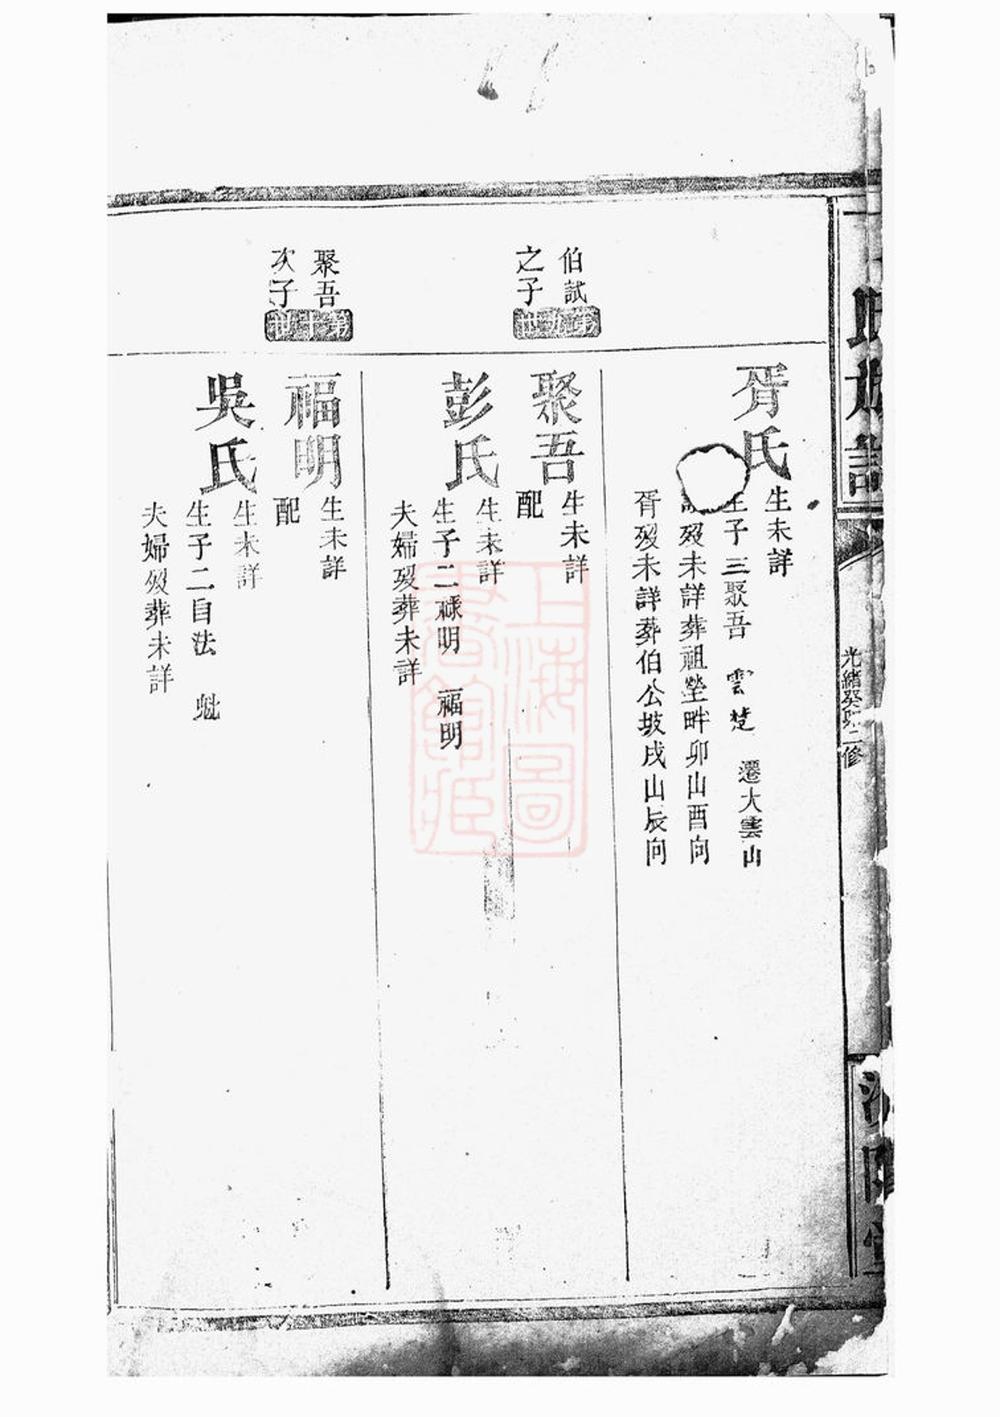 氏族譜
光緒癸卯二修
堂
胥氏
生未詳
生子三聚吾 雲楚 遷大雲山
歿未詳葬祖塋畔卯山酉向
胥歿未詳葬伯公坡戌山辰向
伯試
之子
第九世
聚吾
生未詳
配
彭氏
生未詳
生子二祿明 福明
夫婦歿葬未詳
聚吾
次子
第十世
福明
生未詳
配
吳氏
生未詳
生子二自法 魁
夫婦歿葬未詳
上海圖
書館藏